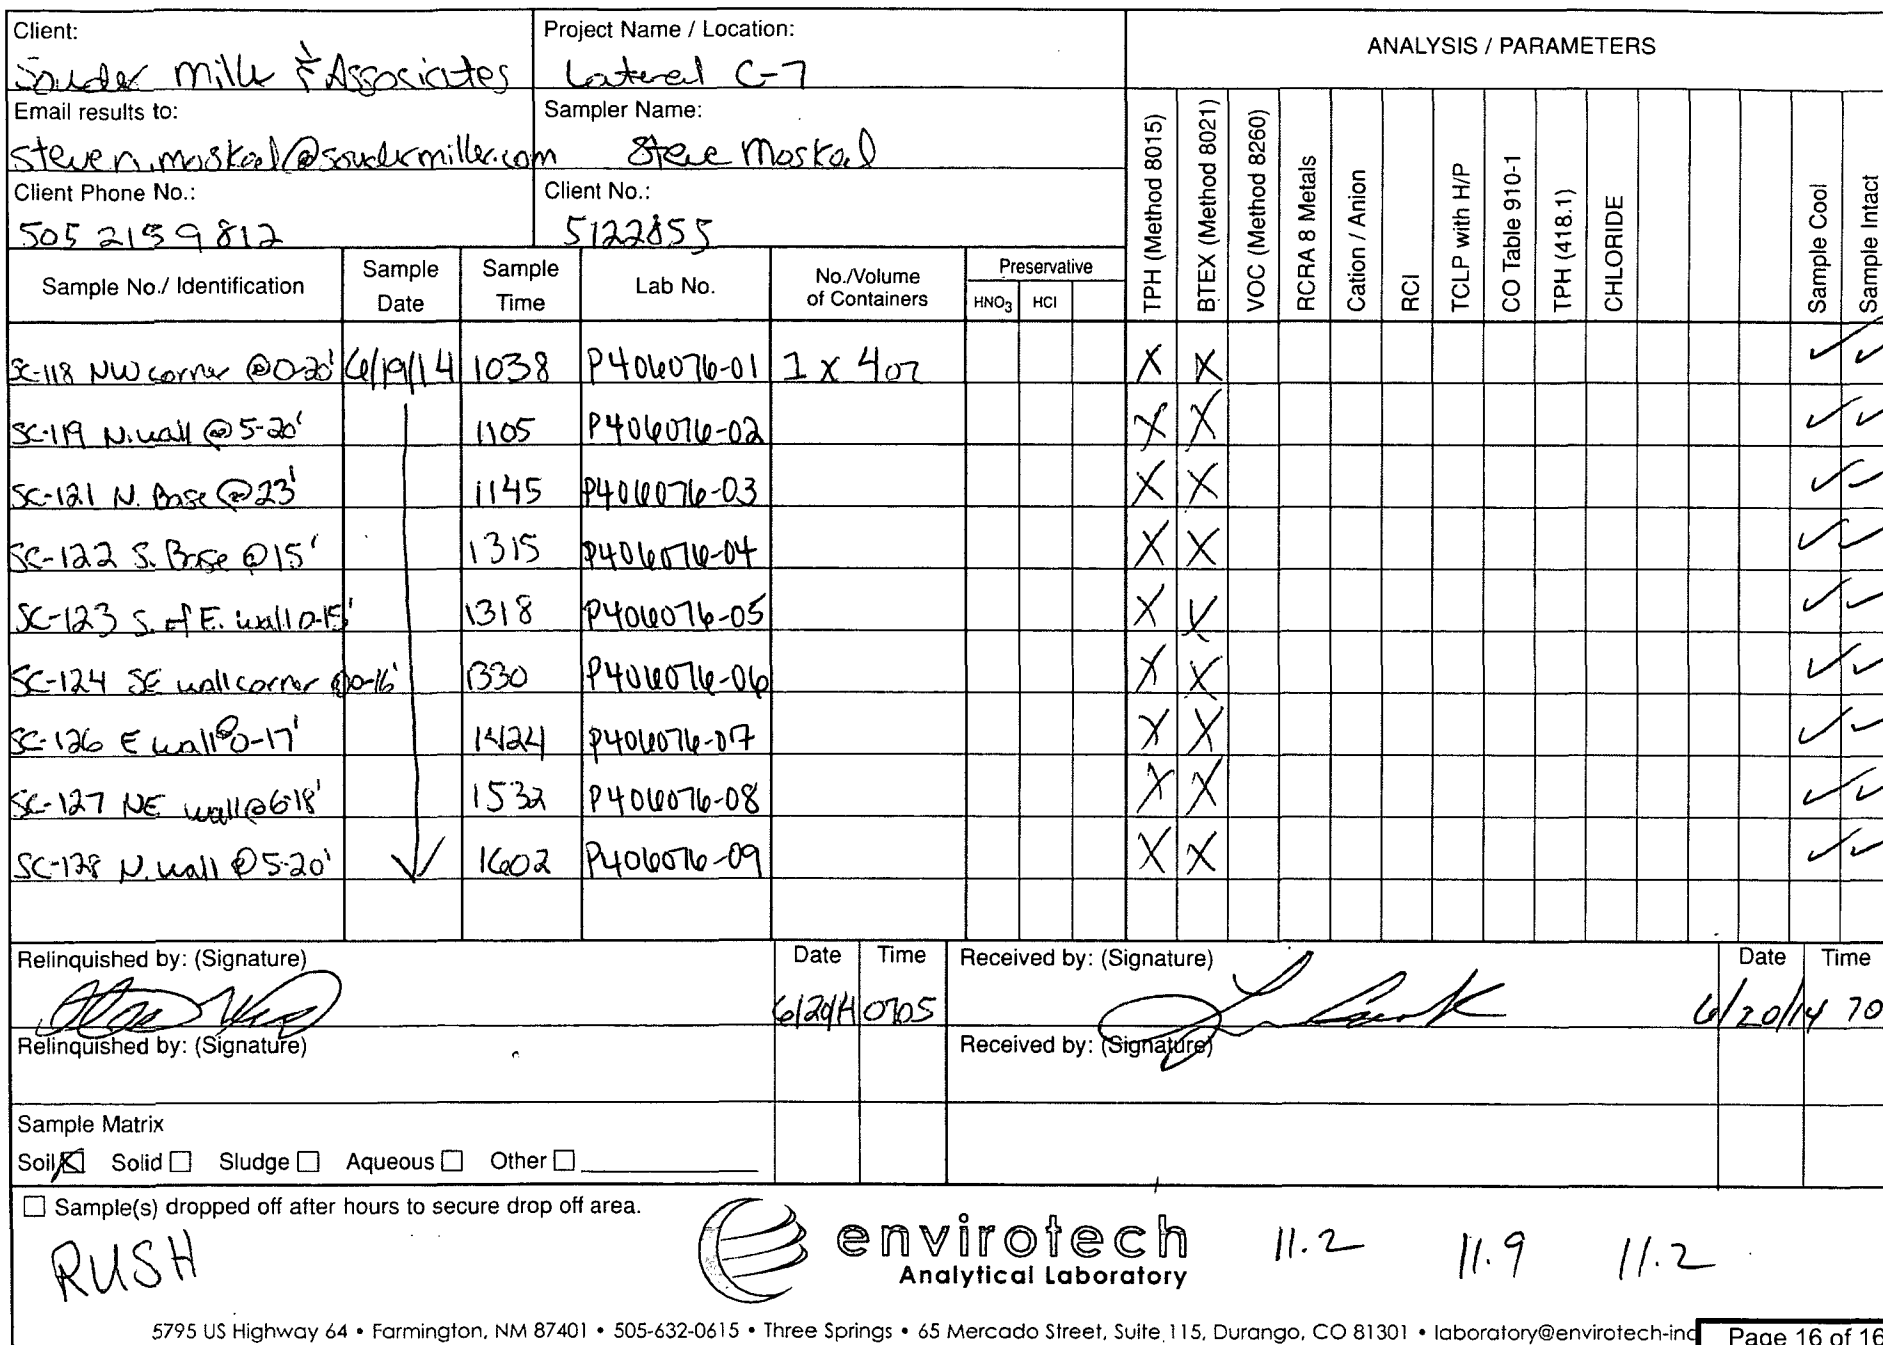 Client:
Souder Miller & Associates
Project Name / Location:
Lateral C-7
ANALYSIS / PARAMETERS
Email results to:
steven.moskal@soudermiller.com
Sampler Name:
Steve Moskal
Client Phone No.:
505 2159812
Client No.:
5122855
Sample No./ Identification
Sample Date
Sample Time
Lab No.
No./Volume of Containers
Preservative
HNO3
HCl
TPH (Method 8015)
BTEX (Method 8021)
VOC (Method 8260)
RCRA 8 Metals
Cation / Anion
RCI
TCLP with H/P
CO Table 910-1
TPH (418.1)
CHLORIDE
Sample Cool
Sample Intact
SC-118 NW corner @0-20' 6/19/14 1038 P406076-01 1 x 4oz X X ✓ ✓
SC-119 N. wall @ 5-20' 1105 P406076-02 X X ✓ ✓
SC-121 N. Base @ 23' 1145 P406076-03 X X ✓ ✓
SC-122 S. Base @ 15' 1315 P406076-04 X X ✓ ✓
SC-123 S. of E. wall 0-15' 1318 P406076-05 X X ✓ ✓
SC-124 SE wall corner @0-16' 1330 P406076-06 X X ✓ ✓
SC-126 E wall @ 0-17' 1424 P406076-07 X X ✓ ✓
SC-127 NE wall @ 6-18' 1532 P406076-08 X X ✓ ✓
SC-128 N. wall @ 5-20' 1602 P406076-09 X X ✓ ✓
Relinquished by: (Signature)
Date
Time
6/20/14 0705
Received by: (Signature)
Date
Time
6/20/14 70
Relinquished by: (Signature)
Received by: (Signature)
Sample Matrix
Soil X Solid Sludge Aqueous Other
Sample(s) dropped off after hours to secure drop off area.
RUSH
envirotech
Analytical Laboratory
11.2 11.9 11.2
5795 US Highway 64 • Farmington, NM 87401 • 505-632-0615 • Three Springs • 65 Mercado Street, Suite 115, Durango, CO 81301 • laboratory@envirotech-inc
Page 16 of 16